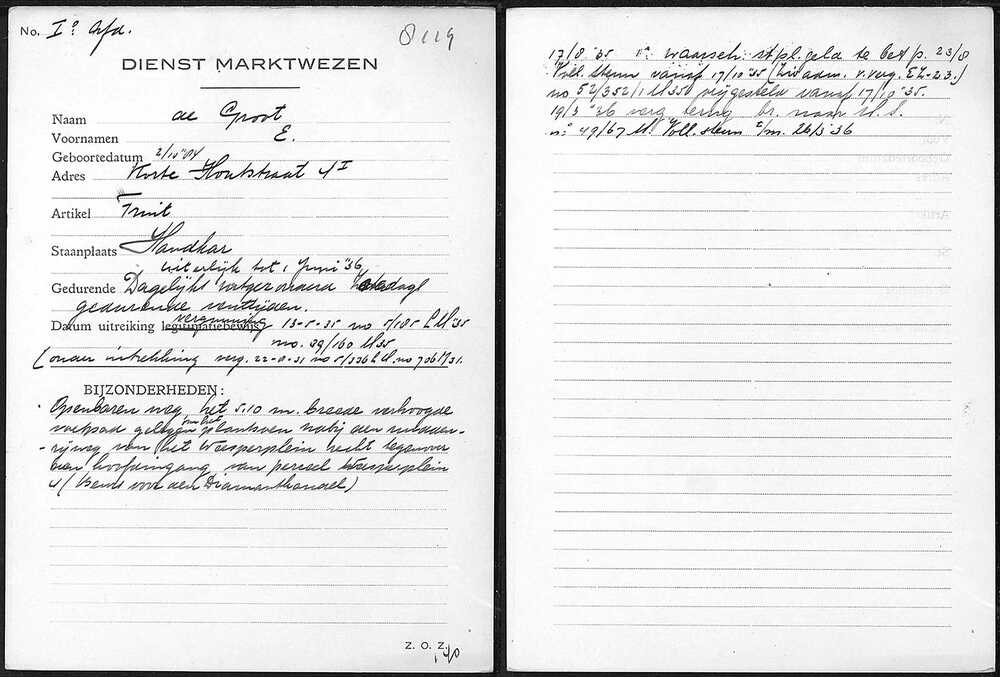 No. Iᵉ Afd.
8119
DIENST MARKTWEZEN
Naam de Groot
Voornamen E.
Geboortedatum 2/10 '04
Adres Korte Houtstraat 4 I
Artikel Fruit
Staanplaats Handkar
uiterlijk tot 1 Juni '36
Gedurende Dagelijks uitgezonderd
gedurende venttijden.
vergunning
Datum uitreiking legitimatiebewijs 13-5-35 no 5/185 L.M '35
no. 29/160 M 35
(onder intrekking verg. 22-8-31 no 5/336 L.M. no 706 M 31.
BIJZONDERHEDEN:
Openbaren weg, het 5.10 m. breede verhoogde
voetpad gelegen om het plantsoen nabij den midden-
-rijweg van het Weesperplein recht tegenover
den hoofdingang van perceel Weesperplein
4 (Beurs voor den Diamanthandel)
Z. O. Z.
17/8 '35 1ᵉ waarsch. st.pl.geld te bet. p. 23/8
Voll. Steun vanaf 17/10 '35 (Zie adm. v. verg. EZ-23.)
no 52/352/1 M 35 vrijgesteld vanaf 17/10 '35.
19/3 '36 verg. terug br. naar M.S.
no 49/67 M. Voll. steun t/m. 26/3 '36